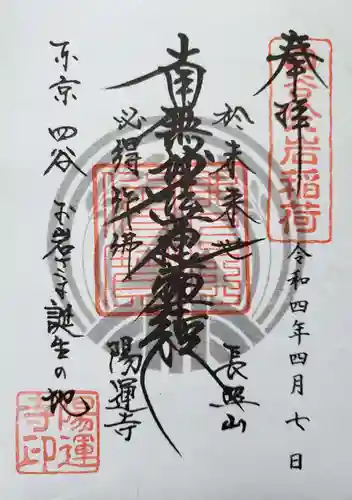 奉拝
四谷於岩稲荷
令和四年四月七日
於未来世
長照山
南無妙法蓮華経
必得作佛
陽運寺
東京 四谷 お岩さま誕生の地
陽運寺印